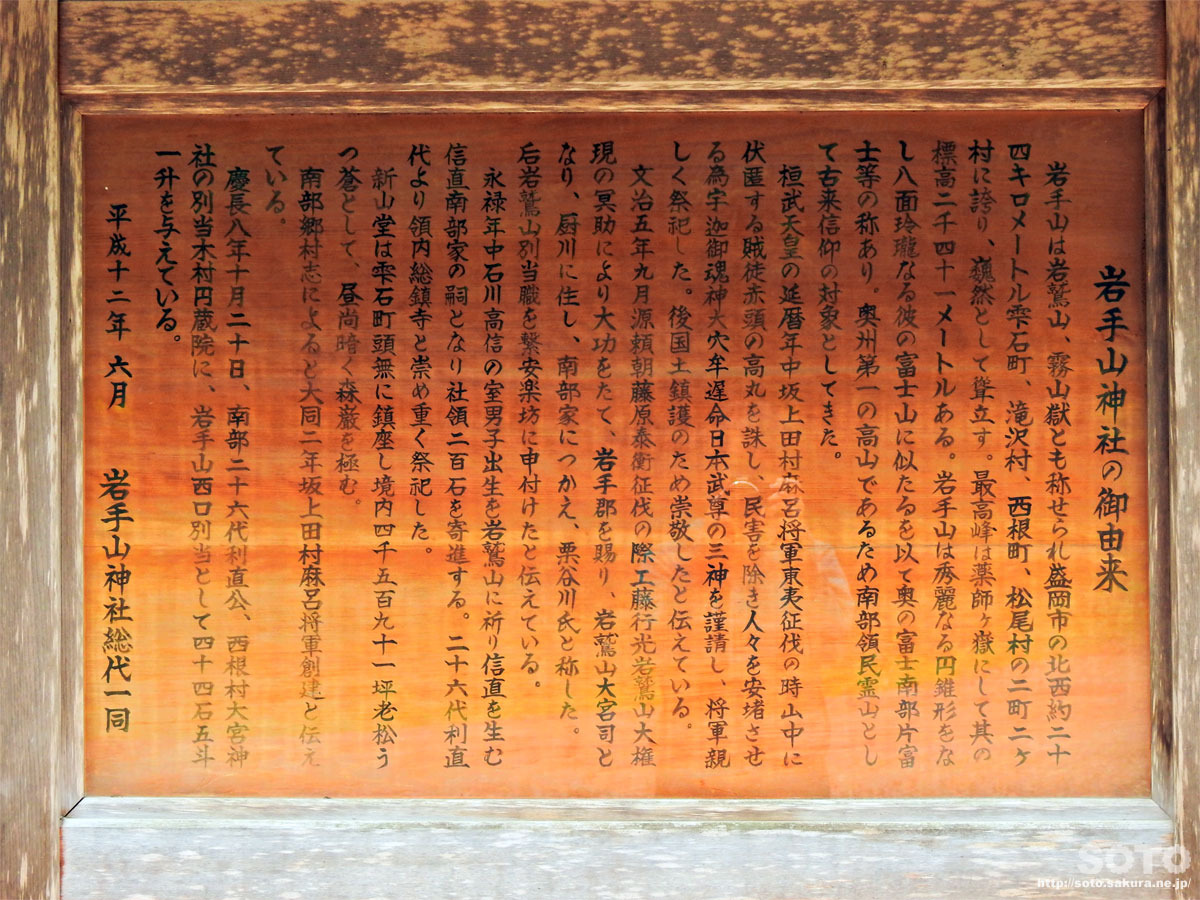 岩手山神社の御由来
岩手山は岩鷲山、霧山獄とも称せられ盛岡市の北西約二十
四キロメートル雫石町、滝沢村、西根町、松尾村の二町二ヶ
村に誇り、巍然として聳立す。最高峰は薬師ヶ獄にして其の
標高二千四十一メートルある。岩手山は秀麗なる円錐形をな
し八面玲瓏なる彼の富士山に似たるを以て奥の富士南部片富
士等の称あり。奥州第一の高山であるため南部領民霊山とし
て古来信仰の対象としてきた。
桓武天皇の延暦年中坂上田村麻呂将軍東夷征伐の時山中に
伏匿する賊徒赤頭の高丸を誅し、民害を除き人々を安堵させ
る為宇迦御魂神大穴牟遅命日本武尊の三神を謹請し、将軍親
しく祭祀した。後国土鎮護のため崇敬したと伝えている。
文治五年九月源頼朝藤原泰衡征伐の際工藤行光岩鷲山大権
現の冥助により大功をたて、岩手郡を賜り、岩鷲山大宮司と
なり、厨川に住し、南部家につかえ、栗谷川氏と称した。
后岩鷲山別当職を繋安楽坊に申付けたと伝えている。
永禄年中石川高信の室男子出生を岩鷲山に祈り信直を生む
信直南部家の嗣となり社領二百石を寄進する。二十六代利直
代より領内総鎮寺と崇め重く祭祀した。
新山堂は雫石町頭無に鎮座し境内四千五百九十一坪老松う
つ蒼として、昼尚暗く森厳を極む。
南部郷村志によると大同二年坂上田村麻呂将軍創建と伝え
ている。
慶長八年十月二十日、南部二十六代利直公、西根村大宮神
社の別当木村円蔵院に、岩手山西口別当として四十四石五斗
一升を与えている。
平成十二年 六月 岩手山神社総代一同
SOTO
http://soto.sakura.ne.jp/